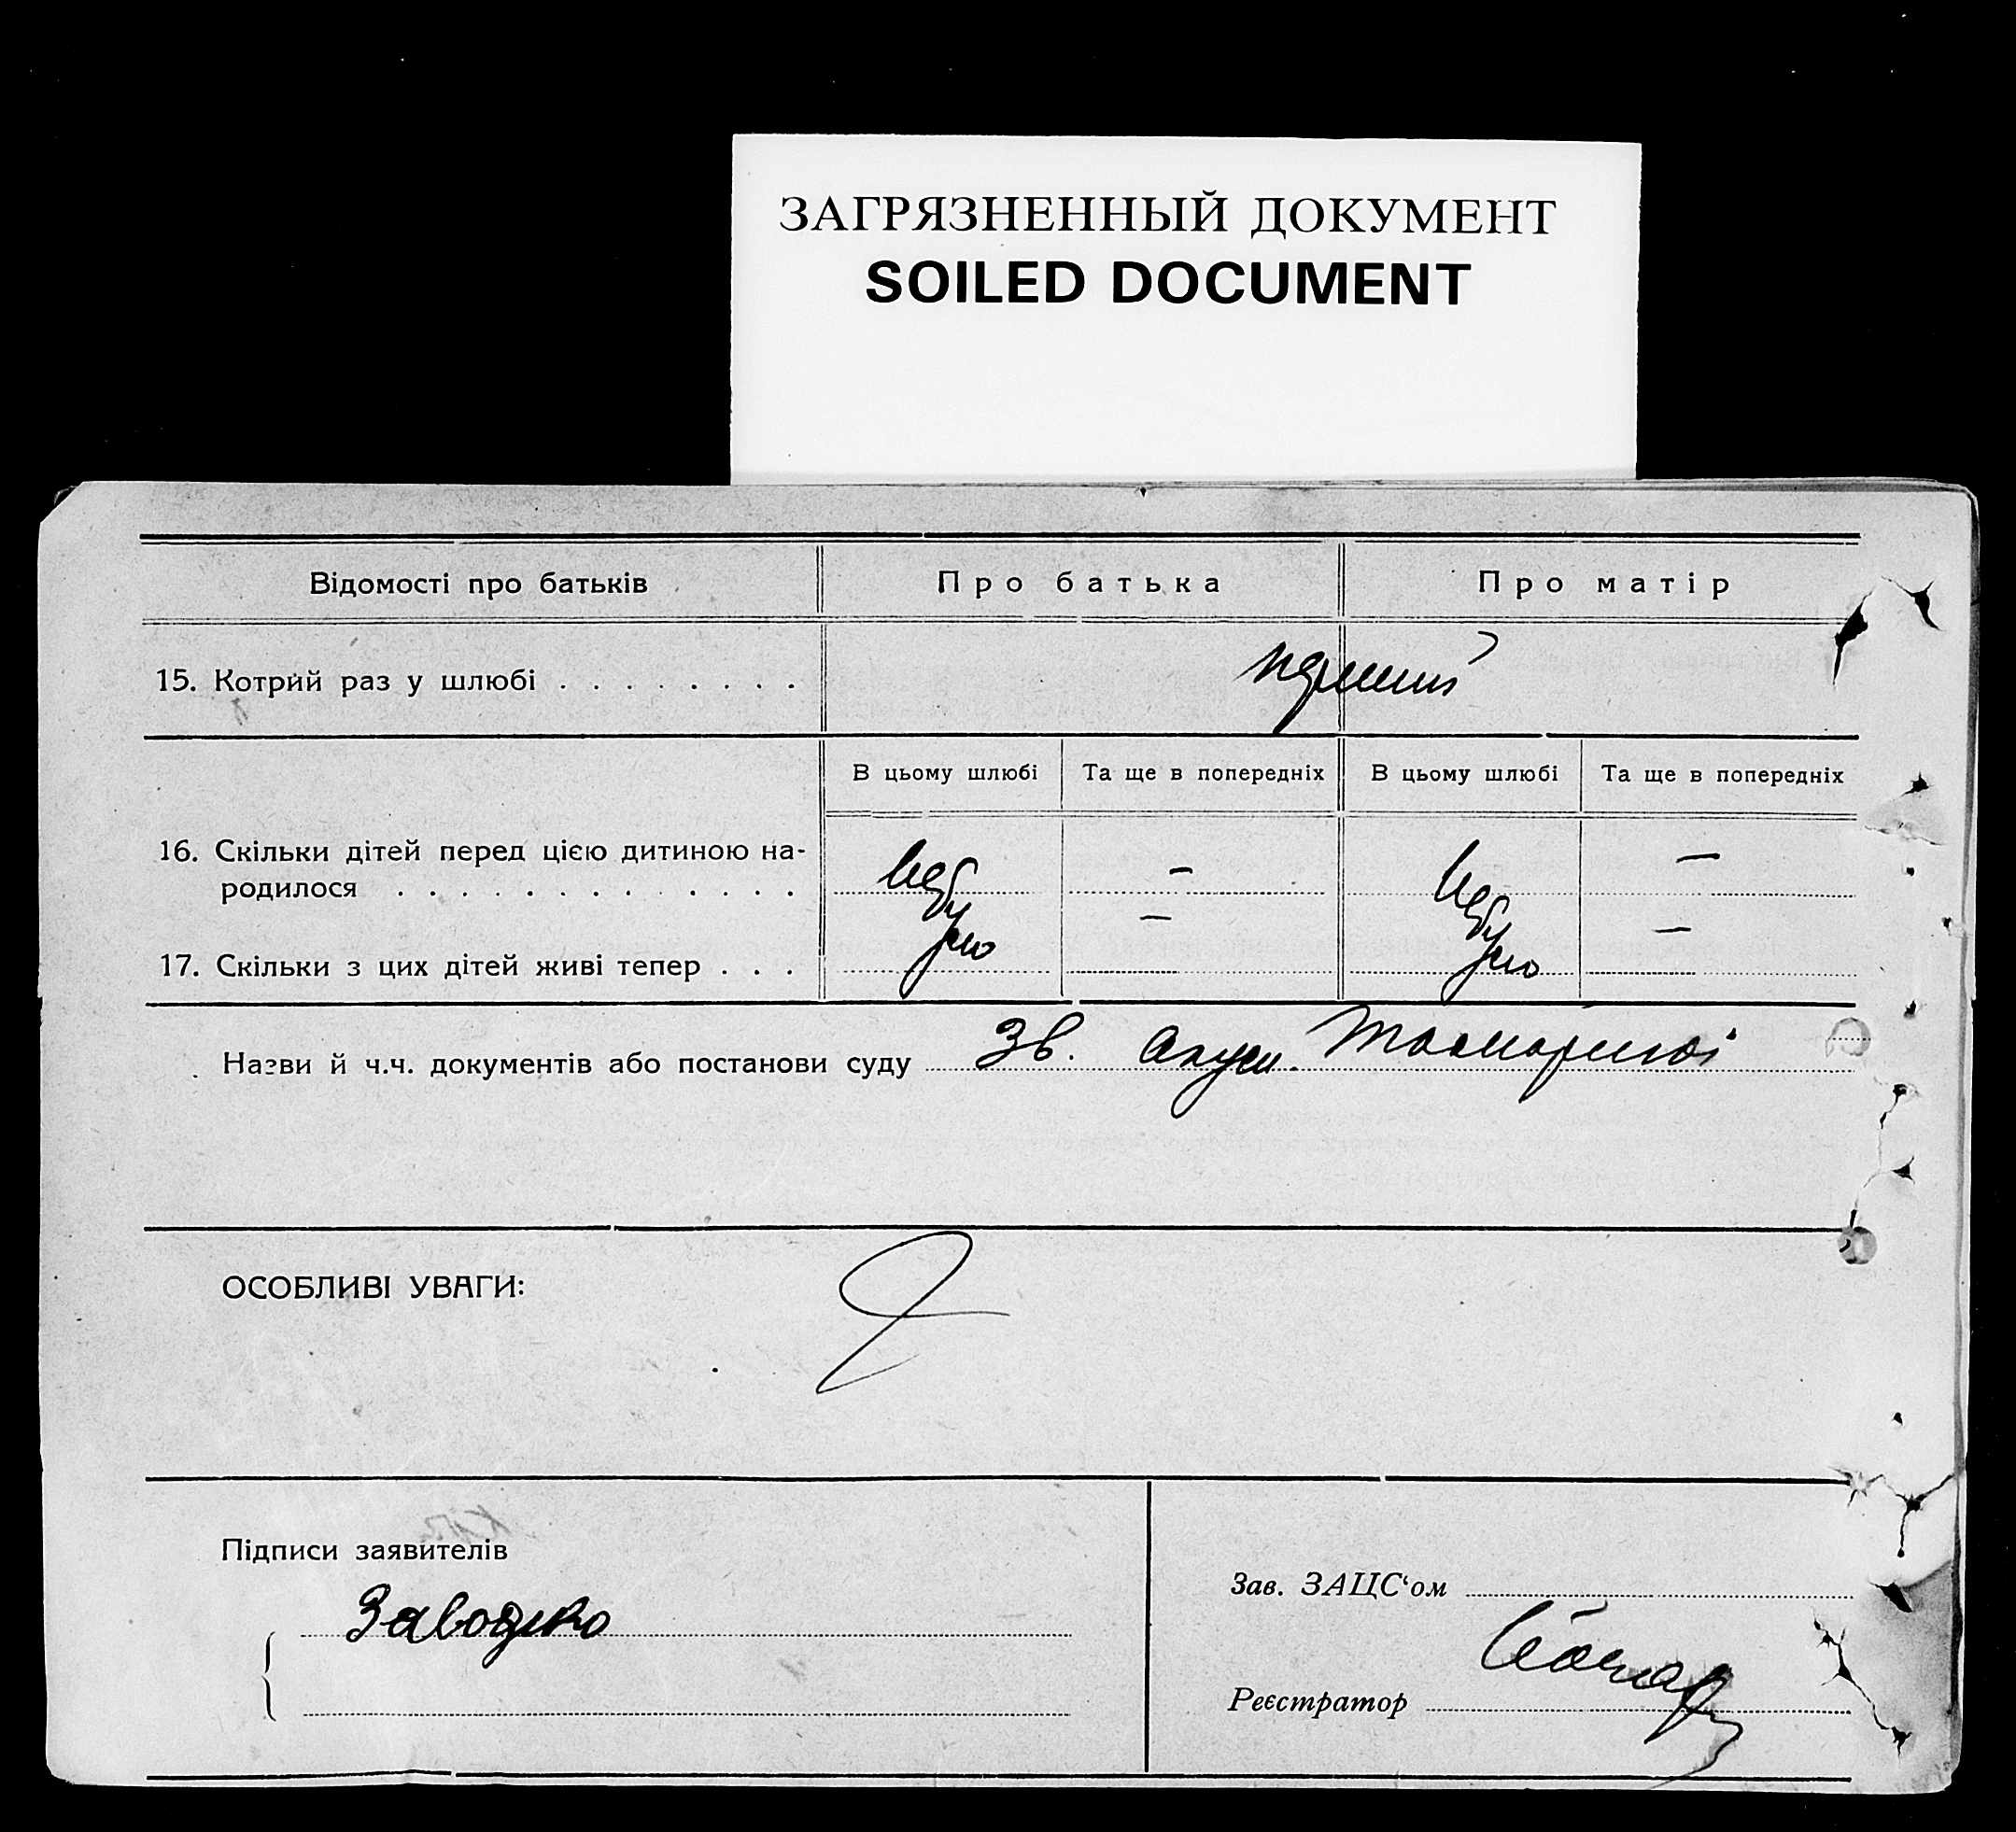 ЗАГРЯЗНЕННЫЙ ДОКУМЕНТ
SOILED DOCUMENT
Відомості про батьків
Про батька
Про матір
15. Котрий раз у шлюбі . . . . . . . .
перший
В цьому шлюбі
Та ще в попередніх
В цьому шлюбі
Та ще в попередніх
16. Скільки дітей перед цією дитиною на-
родилося . . . . . . . . . . . . .
не бу
–
не бу
–
ло
–
ло
–
17. Скільки з цих дітей живі тепер . . .
Назви й ч.ч. документів або постанови суду Зв. Акуш.
ОСОБЛИВІ УВАГИ:
Підписи заявителів
Зав. ЗАЦС‘ом
Реєстратор